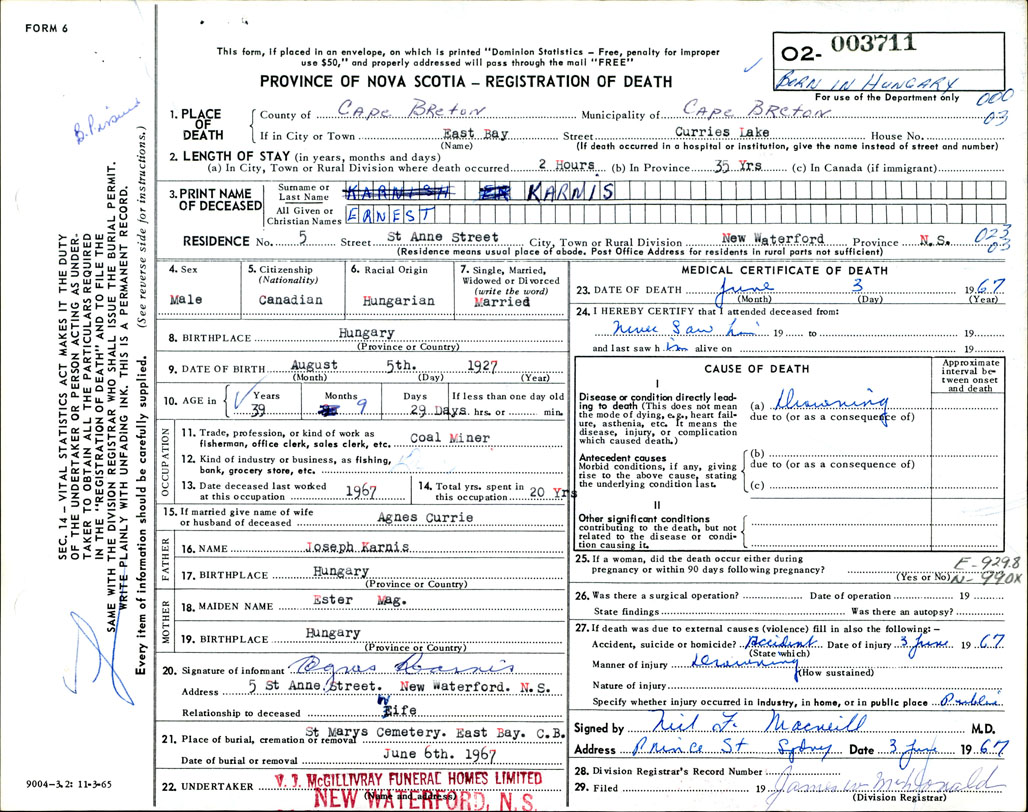 FORM 6
This form, if placed in an envelope, on which is printed "Dominion Statistics – Free, penalty for improper
use $50," and properly addressed will pass through the mail "FREE"
PROVINCE OF NOVA SCOTIA – REGISTRATION OF DEATH
O2- 003711
BORN IN HUNGARY
For use of the Department only
000
03
1. PLACE OF DEATH
County of CAPE BRETON Municipality of CAPE BRETON
If in City or Town East Bay Street Curries Lake House No.
(Name) (If death occurred in a hospital or institution, give the name instead of street and number)
2. LENGTH OF STAY (in years, months and days)
(a) In City, Town or Rural Division where death occurred 2 Hours. (b) In Province 35 Yrs (c) In Canada (if immigrant)
3. PRINT NAME OF DECEASED
Surname or Last Name KARNISH ER KARNIS
All Given or Christian Names ERNEST
RESIDENCE No. 5 Street St Anne Street City, Town or Rural Division New Waterford Province N.S.
023
03
(Residence means usual place of abode. Post Office Address for residents in rural parts not sufficient)
4. Sex
Male
5. Citizenship
(Nationality)
Canadian
6. Racial Origin
Hungarian
7. Single, Married,
Widowed or Divorced
(write the word)
Married
8. BIRTHPLACE Hungary
(Province or Country)
9. DATE OF BIRTH August 5th. 1927
(Month) (Day) (Year)
10. AGE in Years Months Days If less than one day old
39 9 29 Days. hrs. or min.
OCCUPATION
11. Trade, profession, or kind of work as
fisherman, office clerk, sales clerk, etc. Coal Miner
12. Kind of industry or business, as fishing,
bank, grocery store, etc.
13. Date deceased last worked
at this occupation 1967
14. Total yrs. spent in
this occupation 20 Yrs
15. If married give name of wife
or husband of deceased Agnes Currie
FATHER
16. NAME Joseph Karnis
17. BIRTHPLACE Hungary
(Province or Country)
MOTHER
18. MAIDEN NAME Ester Mag.
19. BIRTHPLACE Hungary
(Province or Country)
20. Signature of informant Agnes Karnis
Address 5 St Anne Street. New Waterford. N.S.
Relationship to deceased Wife
21. Place of burial, cremation or removal St Marys Cemetery. East Bay. C.B.
Date of burial or removal June 6th. 1967
22. UNDERTAKER V. J. McGILLIVRAY FUNERAL HOMES LIMITED
(Name and address)
NEW WATERFORD, N. S.
MEDICAL CERTIFICATE OF DEATH
23. DATE OF DEATH June 3 1967
(Month) (Day) (Year)
24. I HEREBY CERTIFY that I attended deceased from:
Never Saw him 19 to 19
and last saw him alive on 19
CAUSE OF DEATH
Approximate
interval be-
tween onset
and death
I
Disease or condition directly lead-
ing to death (This does not mean
the mode of dying, e.g., heart fail-
ure, asthenia, etc. It means the
disease, injury, or complication
which caused death.)
(a) Drowning
due to (or as a consequence of)
Antecedent causes
Morbid conditions, if any, giving
rise to the above cause, stating
the underlying condition last.
(b)
due to (or as a consequence of)
(c)
II
Other significant conditions
contributing to the death, but not
related to the disease or condi-
tion causing it.
25. If a woman, did the death occur either during
pregnancy or within 90 days following pregnancy?
(Yes or No)
E-929.8
N-990X
26. Was there a surgical operation? Date of operation 19
State findings Was there an autopsy?
27. If death was due to external causes (violence) fill in also the following: –
Accident, suicide or homicide? Accident Date of injury 3 June 1967
(State which)
Manner of injury Drowning
(How sustained)
Nature of injury
Specify whether injury occurred in industry, in home, or in public place
Signed by Neil F. Macneill M.D.
Address Prince St Sydney Date 3 June 1967
28. Division Registrar's Record Number
29. Filed 19 James W McDonald
(Division Registrar)
SEC. 14 – VITAL STATISTICS ACT MAKES IT THE DUTY
OF THE UNDERTAKER OR PERSON ACTING AS UNDER-
TAKER TO OBTAIN ALL THE PARTICULARS REQUIRED
IN THE "REGISTRATION OF DEATH" AND TO FILE THE
SAME WITH THE DIVISION REGISTRAR WHO SHALL ISSUE THE BURIAL PERMIT.
WRITE PLAINLY WITH UNFADING INK. THIS IS A PERMANENT RECORD.
Every item of information should be carefully supplied. (See reverse side for instructions.)
9004–3.2: 11-3-65